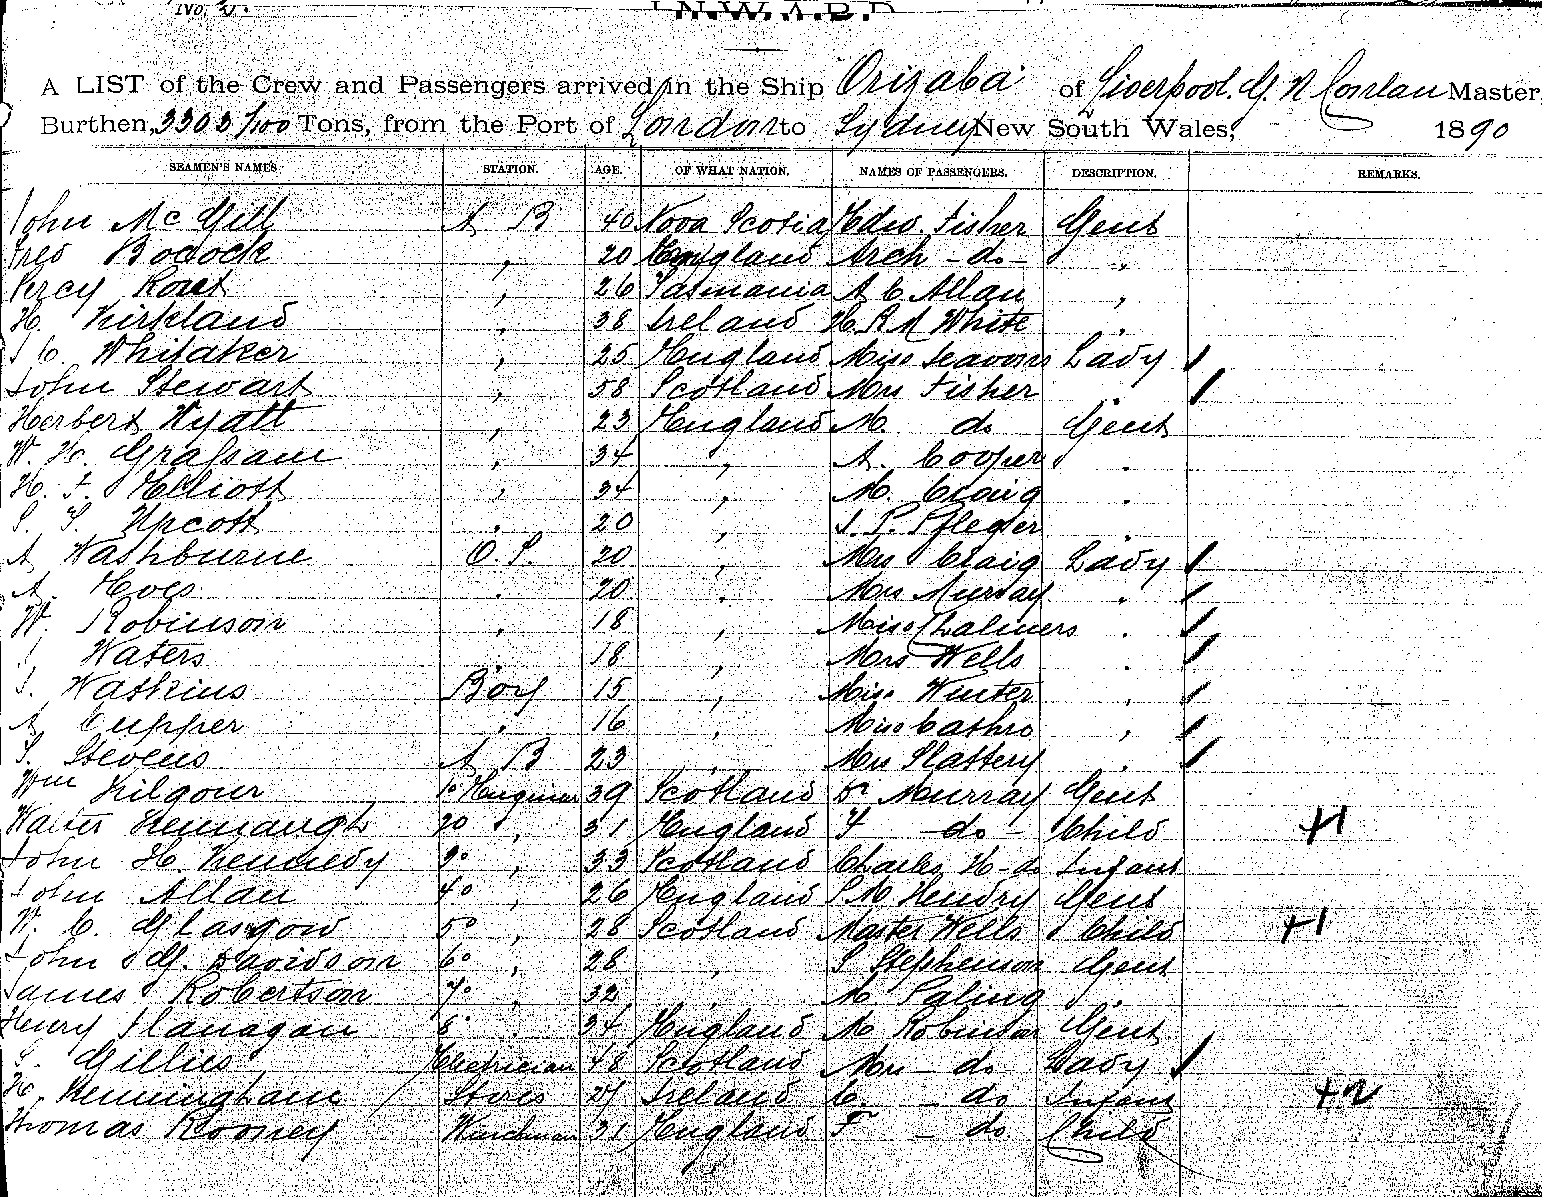 No. 3.
INWARD
A LIST of the Crew and Passengers arrived in the Ship Orizaba of Liverpool. G. N Conlan Master,
Burthen, 3303 /100 Tons, from the Port of London to Sydney New South Wales, 1890
SEAMEN'S NAMES. STATION. AGE. OF WHAT NATION. NAMES OF PASSENGERS. DESCRIPTION. REMARKS.
John Mc Gill A B 40 Nova Scotia Edw. Fisher Gent
Fred Bocock " 20 England Arch - do - "
Percy Rout " 26 Tasmania A C Allan "
H. Kirkland " 38 Ireland H. R M White "
Whitaker " 25 England Miss Lady
John Stewart " 58 Scotland Mrs Fisher "
Herbert Wyatt " 23 England M do Gent
W. H. Grafsam " 34 " A. Cooper "
H. F. Elliott " 34 " M. Craig "
S. S. Upcott " 20 " J. P. Pfleger "
A Washburne O. S. 20 " Mrs Craig Lady
A. Hoes " 20 " Mrs Murray "
W. Robinson " 18 " Miss Chalmers "
J Waters " 18 " Mrs Wells "
J. Watkins Boy 15 " Miss Winter "
A Cupper " 16 " Miss Cathro "
S. Stevens A B 23 " Mrs Slattery "
Wm Kilgour 1o Engineer 39 Scotland Dr Murray Gent
Walter Hennaugh 2o " 31 England Y - do - Child +1
John H. Kennedy 3o " 33 Scotland Charles H - do Infant
John Allan 4o " 26 England S M Hendry Gent
W. C. Glasgow 5o " 28 Scotland Master Wells Child +1
John G. Davidson 6o " 28 " S Stephenson Gent
James Robertson 7o " 32 " M Paling "
Henry Flanagan 8o " 34 England M Robinson Gent
S. Gillies Electrician 48 Scotland Mrs - do Lady
H. Kenningham Stores 27 Ireland C. - do Infant +2
Thomas Rooney Winchman 31 England F - do Child